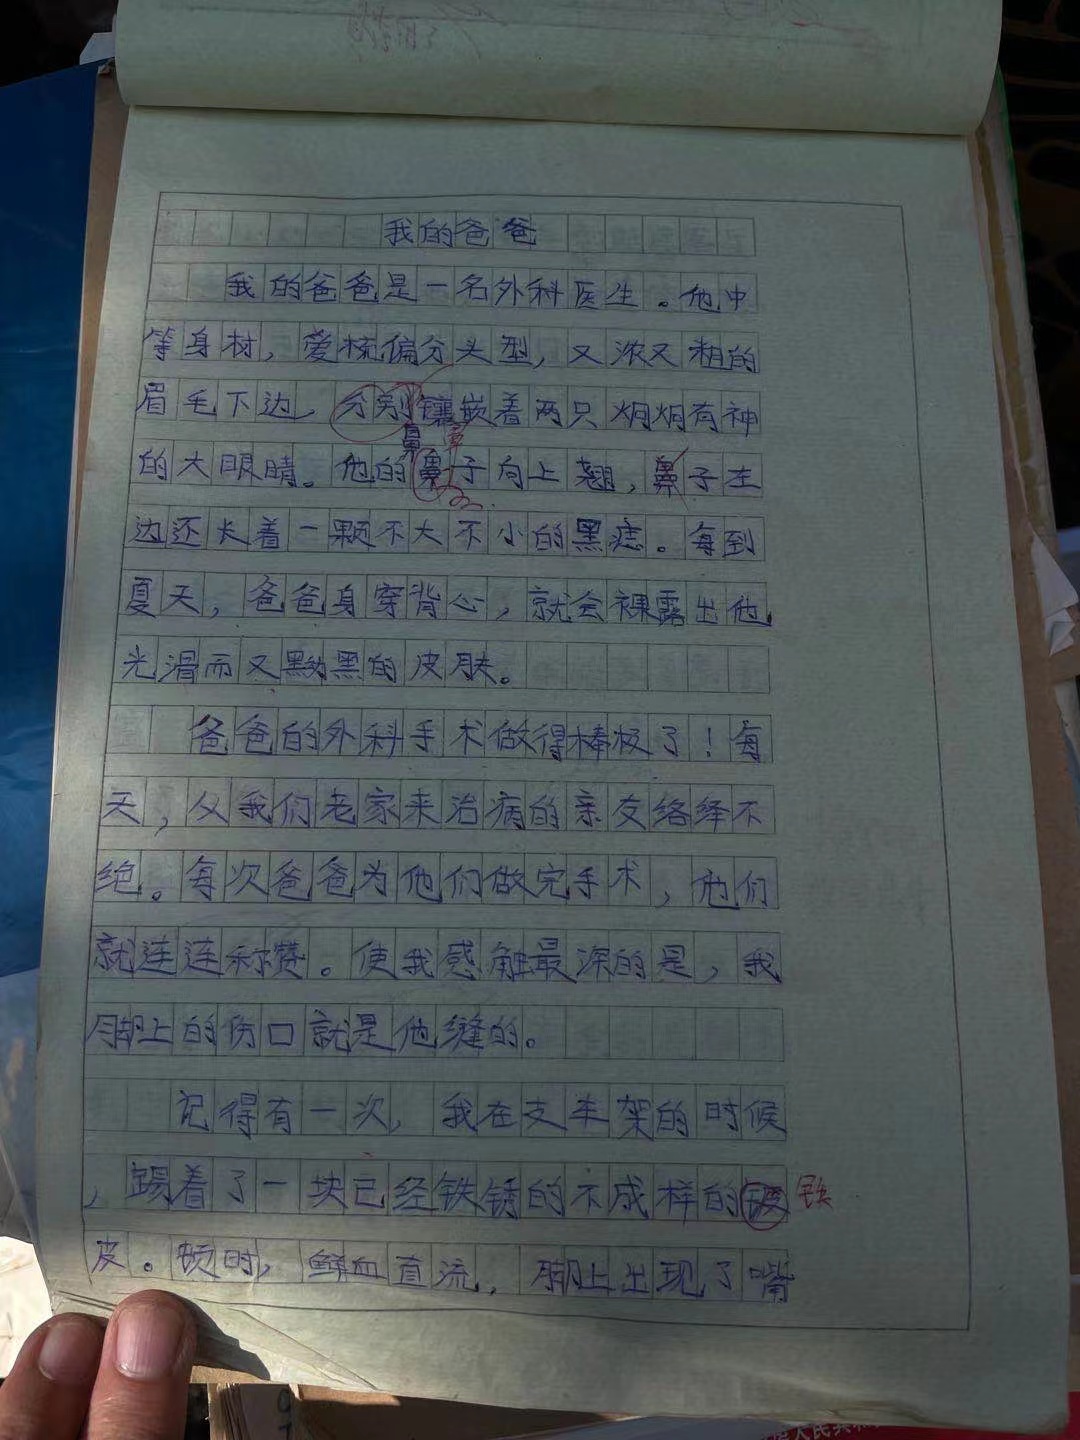 我的爸爸
我的爸爸是一名外科医生。他中
等身材，爱梳偏分头型，又浓又粗的
眉毛下边，分别镶嵌着两只炯炯有神
鼻
的大眼睛。他的鼻子向上翘，鼻子左
边还长着一颗不大不小的黑痣。每到
夏天，爸爸身穿背心，就会裸露出他
光滑而又黝黑的皮肤。
爸爸的外科手术做得棒极了！每
天，从我们老家来治病的亲友络绎不
绝。每次爸爸为他们做完手术，他们
就连连称赞。使我感触最深的是，我
脚上的伤口就是他缝的。
记得有一次，我在支车架的时候
，踢着了一块已经铁锈的不成样的 铁
皮。顿时，鲜血直流，脚上出现了嘴